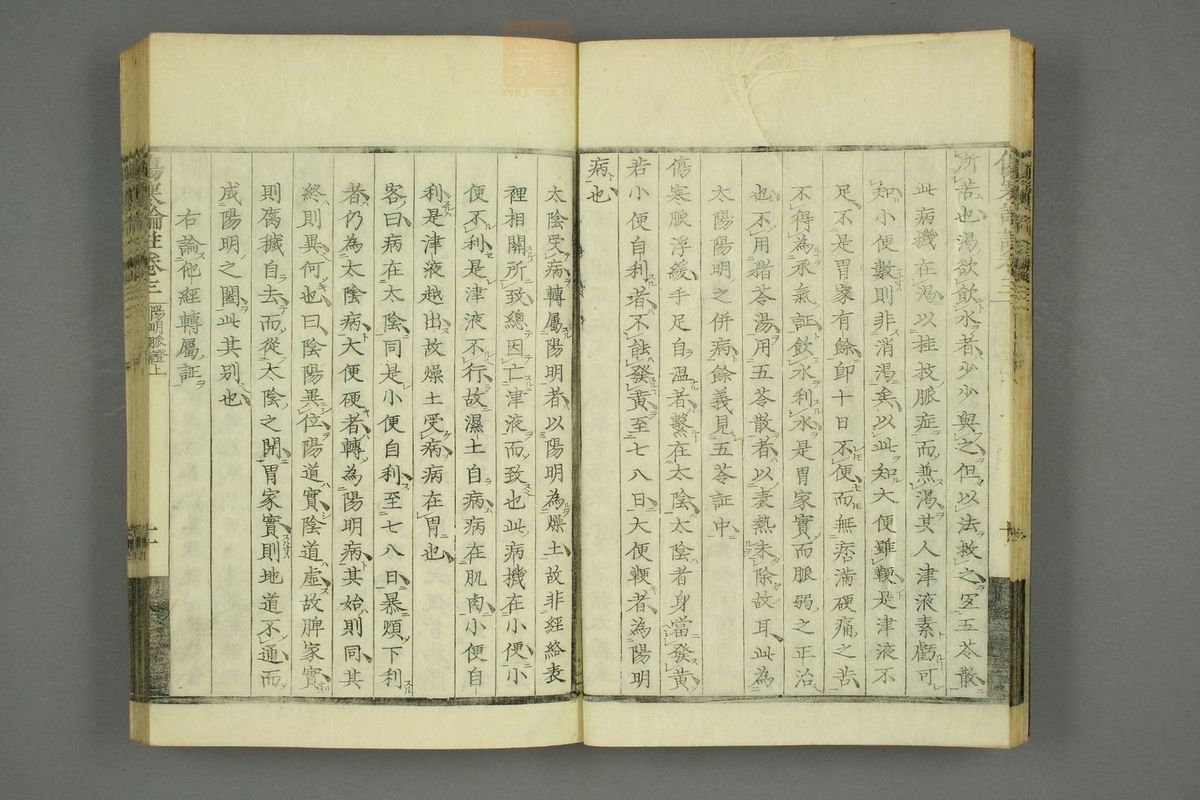 所苦也渴欲飲水者少少與之但以法救之宜五苓散
此病機在渴以桂枝脈症而無渴其人津液素虧可
知小便數則非消渴矣以此知大便雖鞕是津液不
足不是胃家有餘卽十日不便而無痞滿硬痛之苦
不得為承氣証飲水利水是胃家實而脈弱之正治
也不用猪苓湯用五苓散者以表熱未除故耳此為
太陽陽明之併病餘義見五苓証中
傷寒脈浮緩手足自温者繫在太陰太陰者身當發黃
若小便自利者不能發黃至七八日大便鞕者為陽明
病也
太陰受病轉屬陽明者以陽明為燥土故非經絡表
裡相關所致總因亡津液而致也此病機在小便小
便不利是津液不行故濕土自病病在肌肉小便自
利是津液越出故燥土受病病在胃也
客曰病在太陰同是小便自利至七八日暴煩下利
者仍為太陰病大便硬者轉為陽明病其始則同其
終則異何也曰陰陽異位陽道實陰道虛故脾家實
則腐穢自去而從太陰之開胃家實則地道不通而
成陽明之闔此其別也
右論他經轉屬証
傷寒論註卷三
陽明脈證上